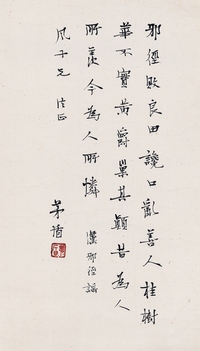 邪徑敗良田讒口亂善人桂樹
華不實黃爵巢其顛昔為人
所羨今為人所憐 漢邪徑謠
風子兄 法正
茅盾